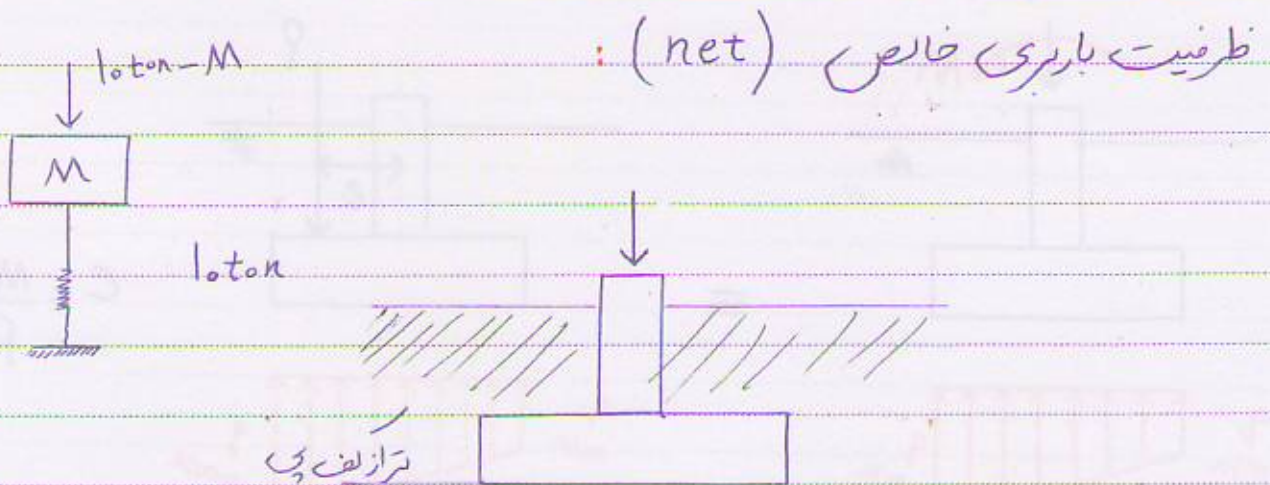 ظرفیت باربری خالص (net) :
10 ton - M
M
10 ton
تراز کف پی